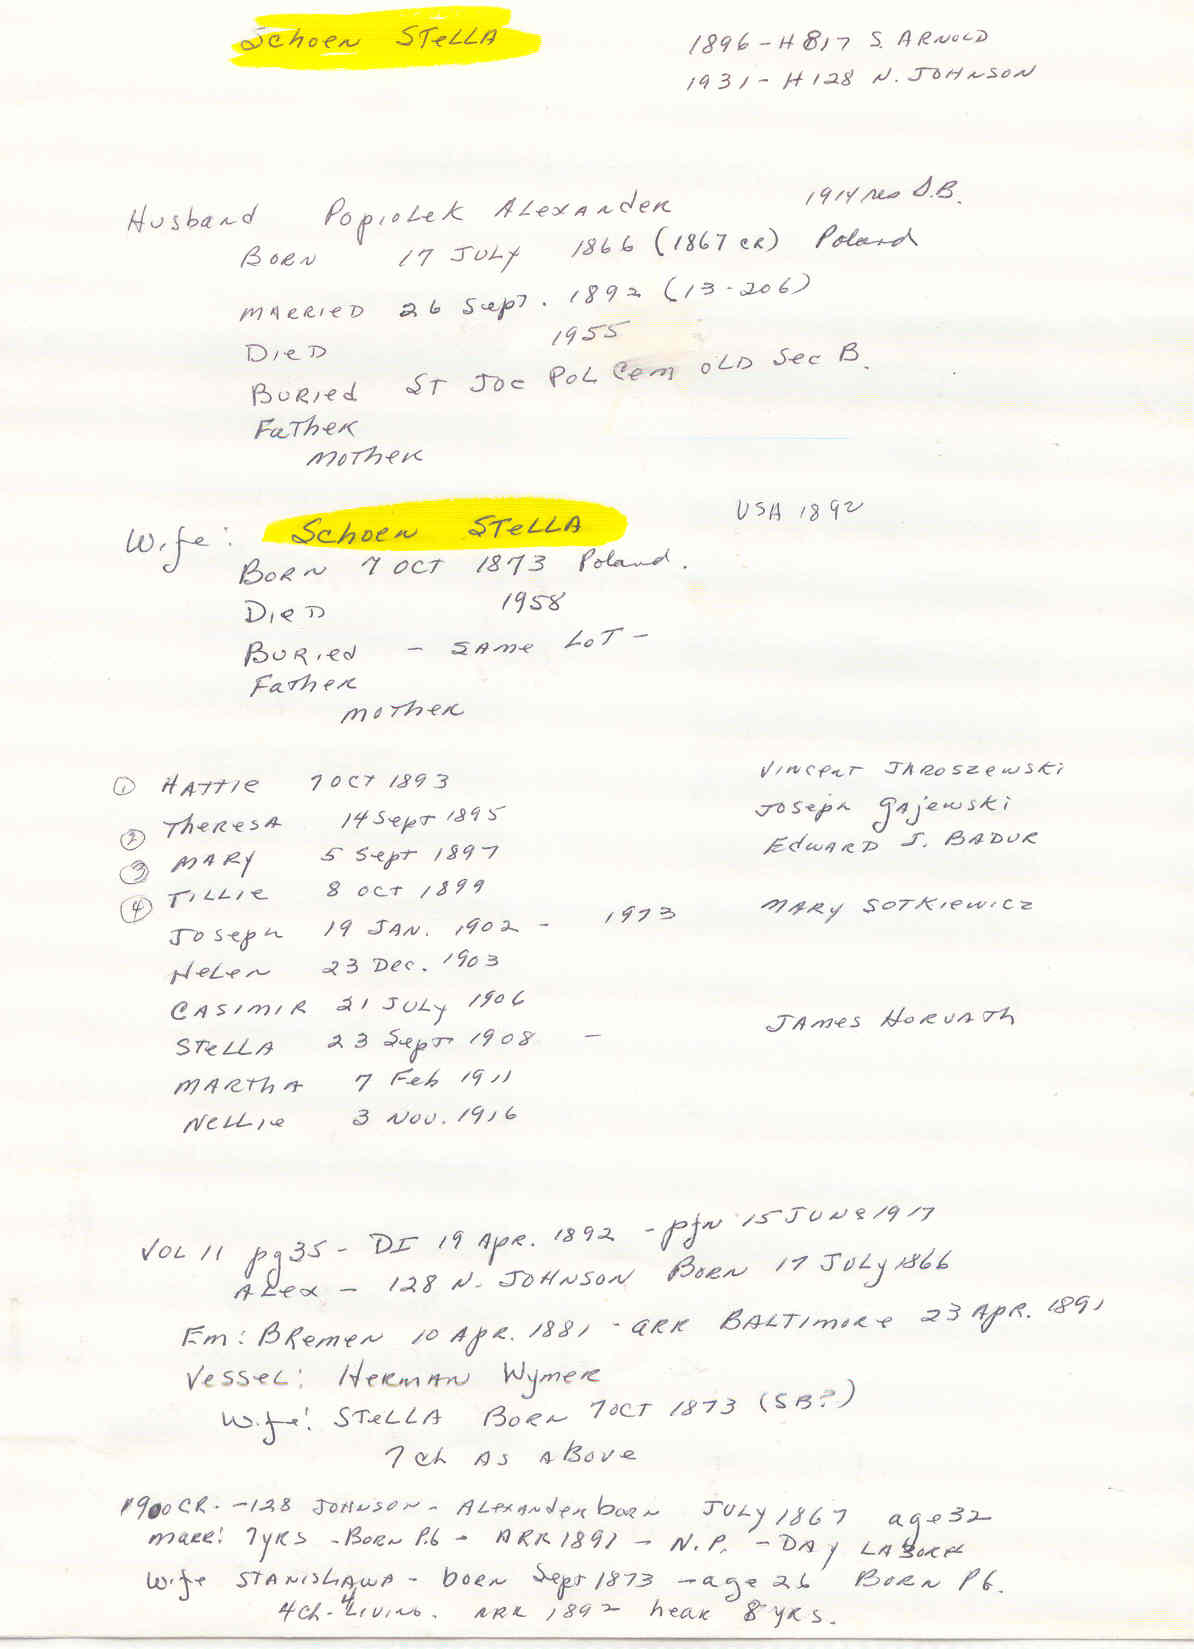 Schoen Stella
1896 - H 817 S. Arnold
1931 - H 128 N. Johnson
Husband Popiolek Alexander 1914 res S.B.
Born 17 July 1866 (1867 CR) Poland
Married 26 Sept. 1892 (13-206)
Died 1955
Buried St Joe Pol Cem Old Sec B.
Father
Mother
Wife: Schoen Stella USA 1892
Born 7 Oct 1873 Poland.
Died 1958
Buried - Same Lot -
Father
Mother
① Hattie 7 Oct 1893 Vincent Jaroszewski
② Theresa 14 Sept 1895 Joseph Gajewski
③ Mary 5 Sept 1897 Edward J. Badur
④ Tillie 8 Oct 1899
Joseph 19 Jan. 1902 - 1973 Mary Sotkiewicz
Helen 23 Dec. 1903
Casimir 21 July 1906
Stella 23 Sept 1908 - James Horvath
Martha 7 Feb 1911
Nellie 3 Nov. 1916
Vol 11 pg 35 - DI 19 Apr. 1892 - pfn 15 June 1917
Alex - 128 N. Johnson Born 17 July 1866
Em: Bremen 10 Apr. 1881 - arr Baltimore 23 Apr. 1891
Vessel: Herman Wymer
Wife: Stella Born 7 Oct 1873 (SB?)
7 ch as above
1900 CR. - 128 Johnson - Alexander born July 1867 age 32
Marr: 7 yrs - Born P.G - Arr 1891 - N.P. - Day Labor
Wife Stanislawa - born Sept 1873 - age 26 Born PG.
4 ch - 4 living. Arr 1892 hear 8 yrs.